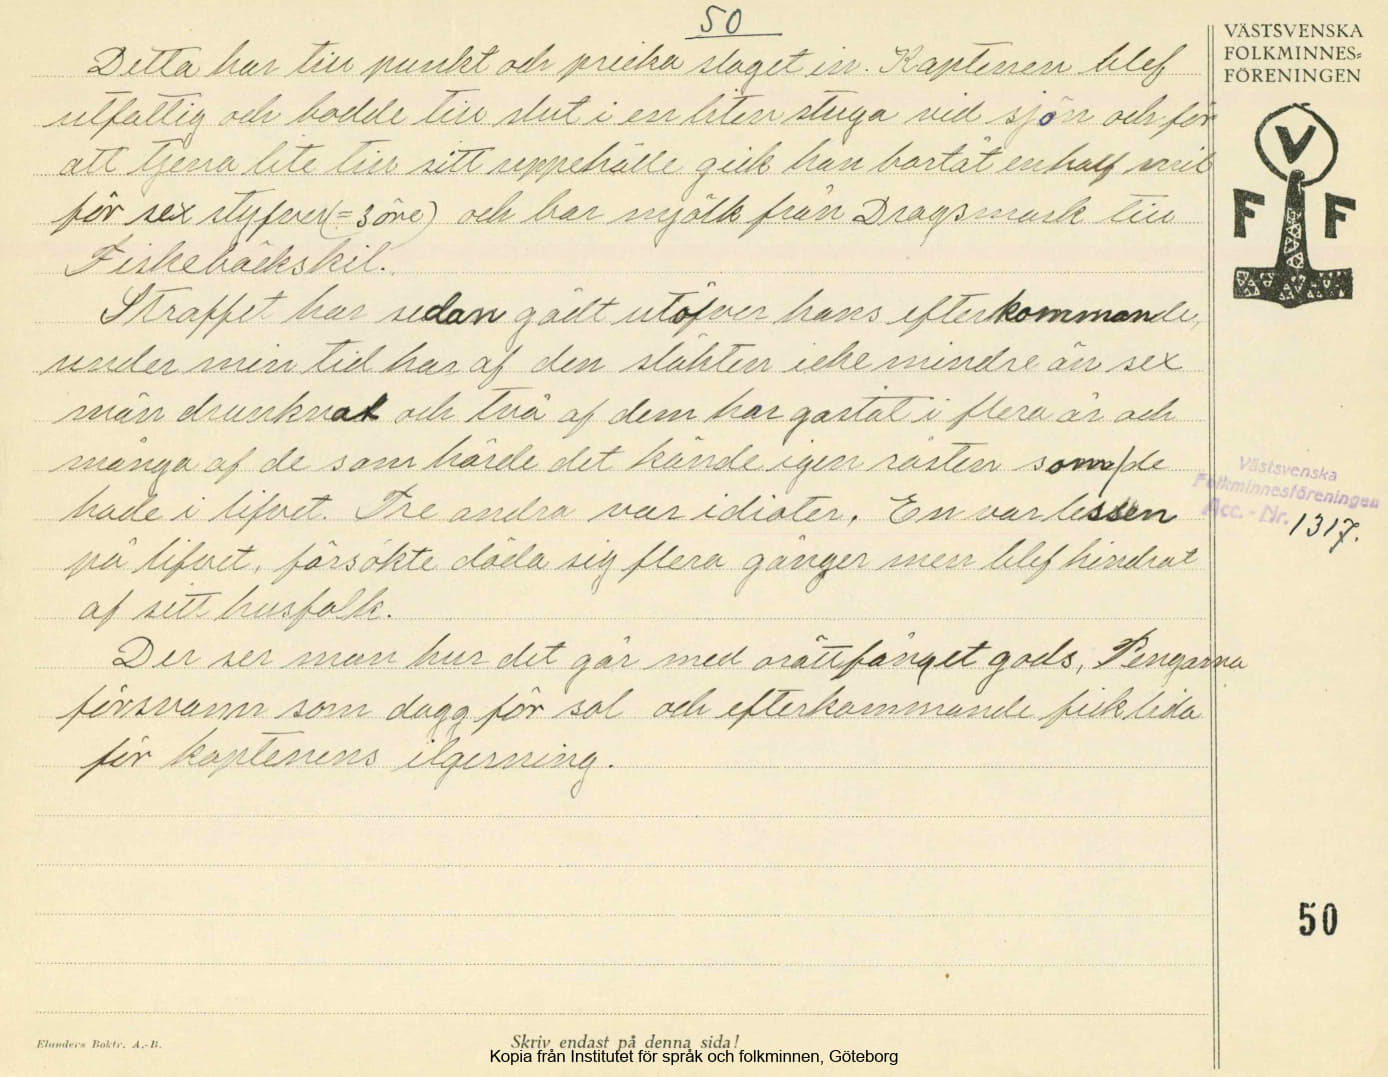 50
Detta har till punkt och pricka slaget in. Kaptenen blef
utfattig och bodde till slut i en liten stuga vid sjön och för
att tjena lite till sitt uppehälle gick han bortåt en half mil
för sex styfver (= 3 öre) och bar mjölk från Dragsmark till
Fiskebäckskil.
Straffet har sedan gådt utöfver hans efterkommande,
under min tid har af den släkten icke mindre än sex
män drunknat och två af dem har gastat i flera år och
många af de som hörde det kände igen rösten som de
hade i lifvet. Tre andra var idioter. En var lessen
på lifvet, försökte döda sig flera gånger men blef hindrat
af sitt husfolk.
Der ser man hur det går med orättfånget gods, Pengarna
försvann som dagg för sol och efterkommande fick lida
för kaptenens ilgerning.
VÄSTSVENSKA
FOLKMINNES=
FÖRENINGEN
V
F F
Västsvenska
Folkminnesföreningen
Acc.-Nr. 1317.
50
Elanders Boktr. A.-B.
Skriv endast på denna sida!
Kopia från Institutet för språk och folkminnen, Göteborg